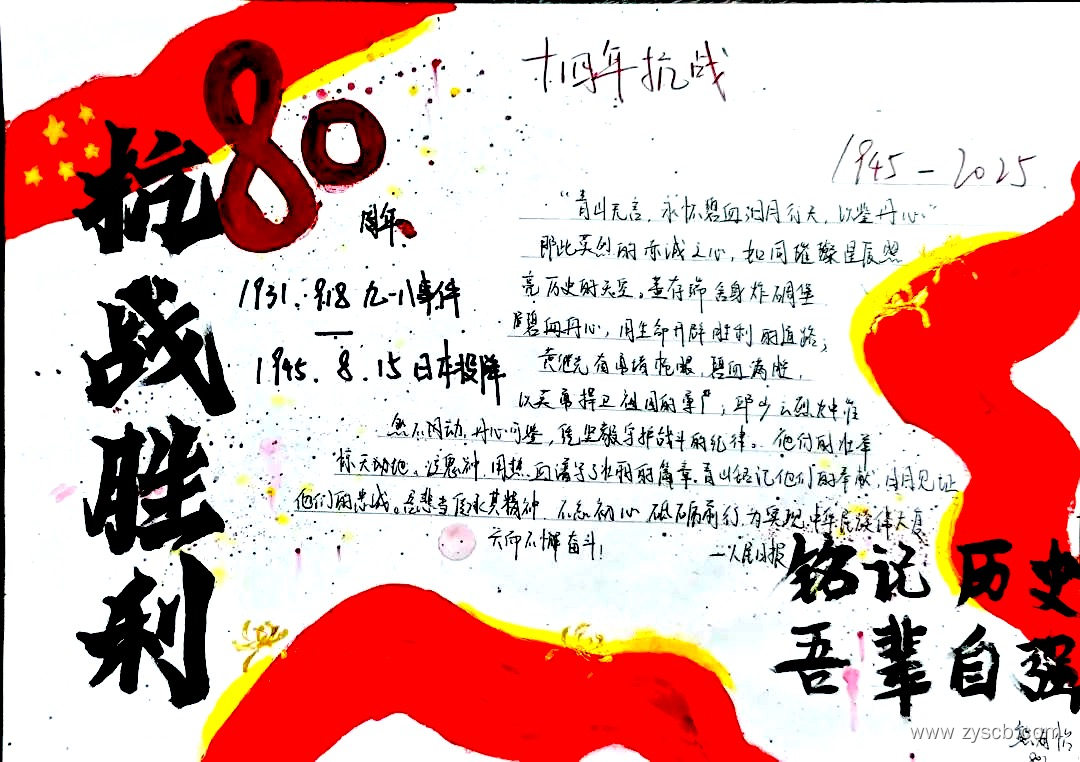 抗战胜利
80
周年
十四年抗战
1945-2025.
1931.9.18 九一八事件
—
1945.8.15 日本投降
"青山无言,永怀碧血;日月行天,以鉴丹心"
那些英烈的赤诚之心,如同璀璨星辰照
亮历史的天空。董存瑞舍身炸碉堡
碧血丹心,用生命开辟胜利的道路;
黄继光 堵枪眼,碧血满腔,
以英勇捍卫祖国的尊严;邱少云烈火中
然不动,丹心可鉴,坚毅守护战斗的纪律。他们的壮举
惊天动地,泣鬼神,用热血谱写了壮丽的篇章。青山铭记他们的奉献,日月见证
他们的忠诚。吾辈当传承其精神 不忘初心 砥砺前行,为实现中华民族伟大复
兴而不懈奋斗!
—人民日报
铭记历史
吾辈自强
www.zyscb.com